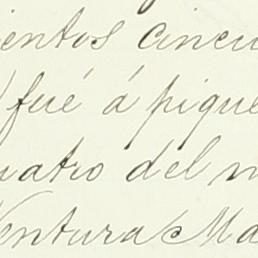 ientos cincu
fué á pique
uatro del m
Ventura Ma